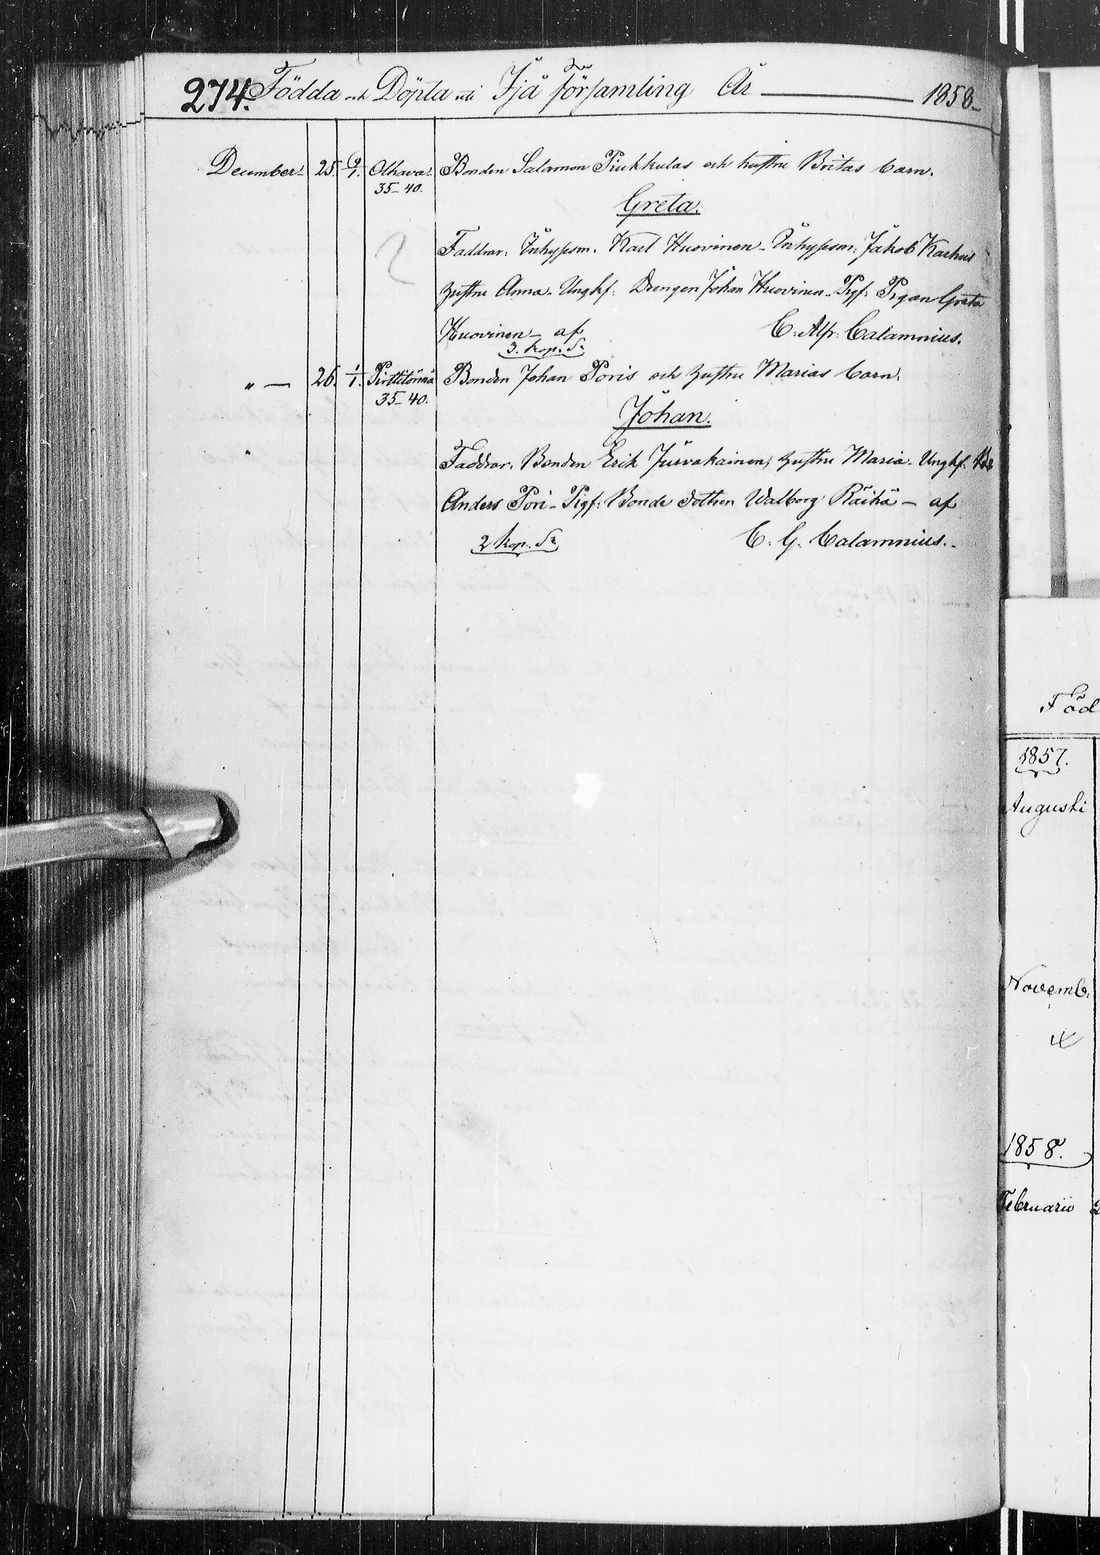 274. Födda och Döpta uti Ijå församling År 1858
December 25. 9/1. Olhava 35-40. Bonden Salamon Pukkulas och hustru Britas barn.
Greta.
Faddrar: Inhyssm. Karl Huovinen - Inhyssm: Jakob Karhus
hustru Anna - Unghf: Drengen Johan Huovinen - Pigf: Pigan Greta
Huovinen - af C. Alfr. Calamnius.
3. kop. Sr
" — 26. 1/1. Pirttitörmä 35-40. Bonden Johan Poris och hustru Marias barn.
Johan.
Faddrar. Bonden Erik Jurvakainen, hustru Maria - Unghf.
Anders Pori - Pigf: Bonde dottren Walborg Räihä - af
2 kop. Sr C. G. Calamnius.
Föd
1857.
Augusti
Novemb.
1858.
Februarii